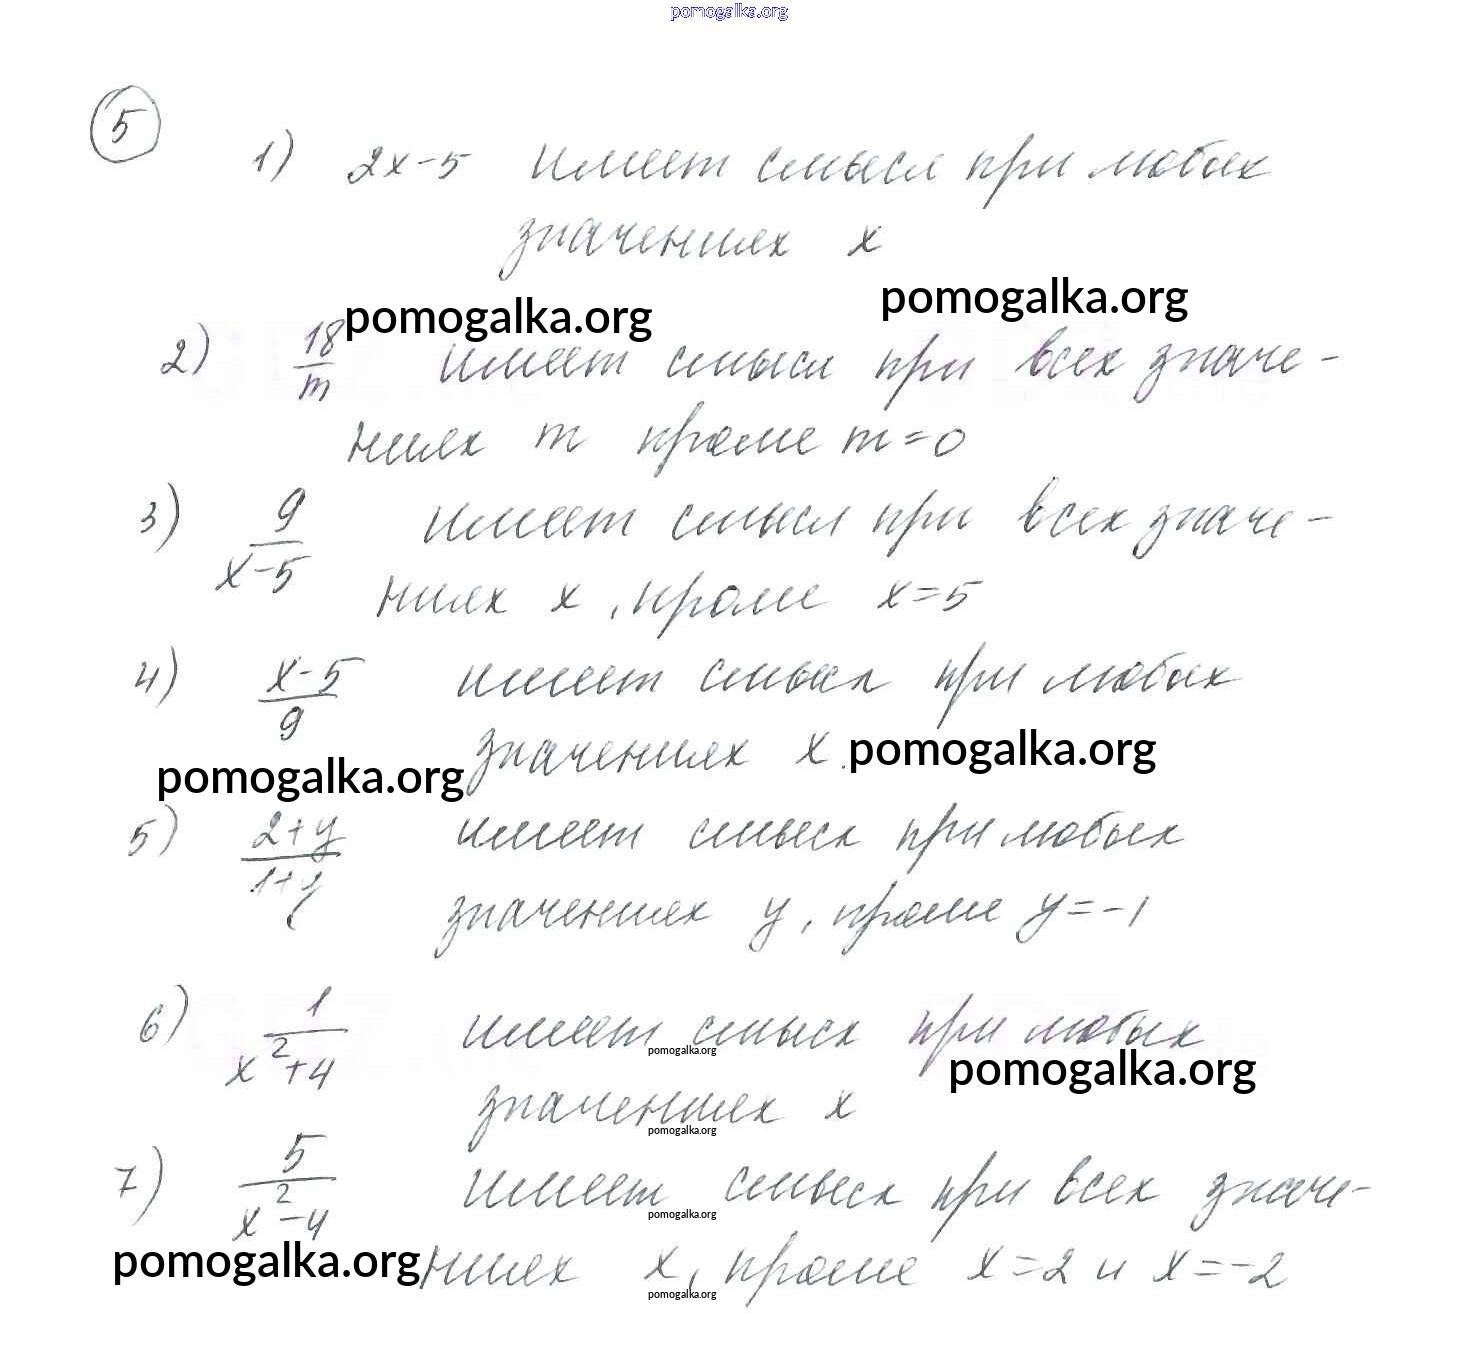 pomogalka.org
5
1) 2x-5 имеет смысл при любых
значениях x
pomogalka.org
pomogalka.org
2) 18/m имеет смысл при всех значе-
ниях m кроме m=0
3) 9/(x-5) имеет смысл при всех значе-
ниях x, кроме x=5
4) (x-5)/9 имеет смысл при любых
значениях x.
pomogalka.org
pomogalka.org
5) (2+y)/(1+y) имеет смысл при любых
значениях y, кроме y=-1
6) 1/(x²+4) имеет смысл при любых
pomogalka.org
pomogalka.org
значениях x
pomogalka.org
7) 5/(x²-4) имеет смысл при всех значе-
pomogalka.org
pomogalka.org
ниях x, кроме x=2 и x=-2
pomogalka.org